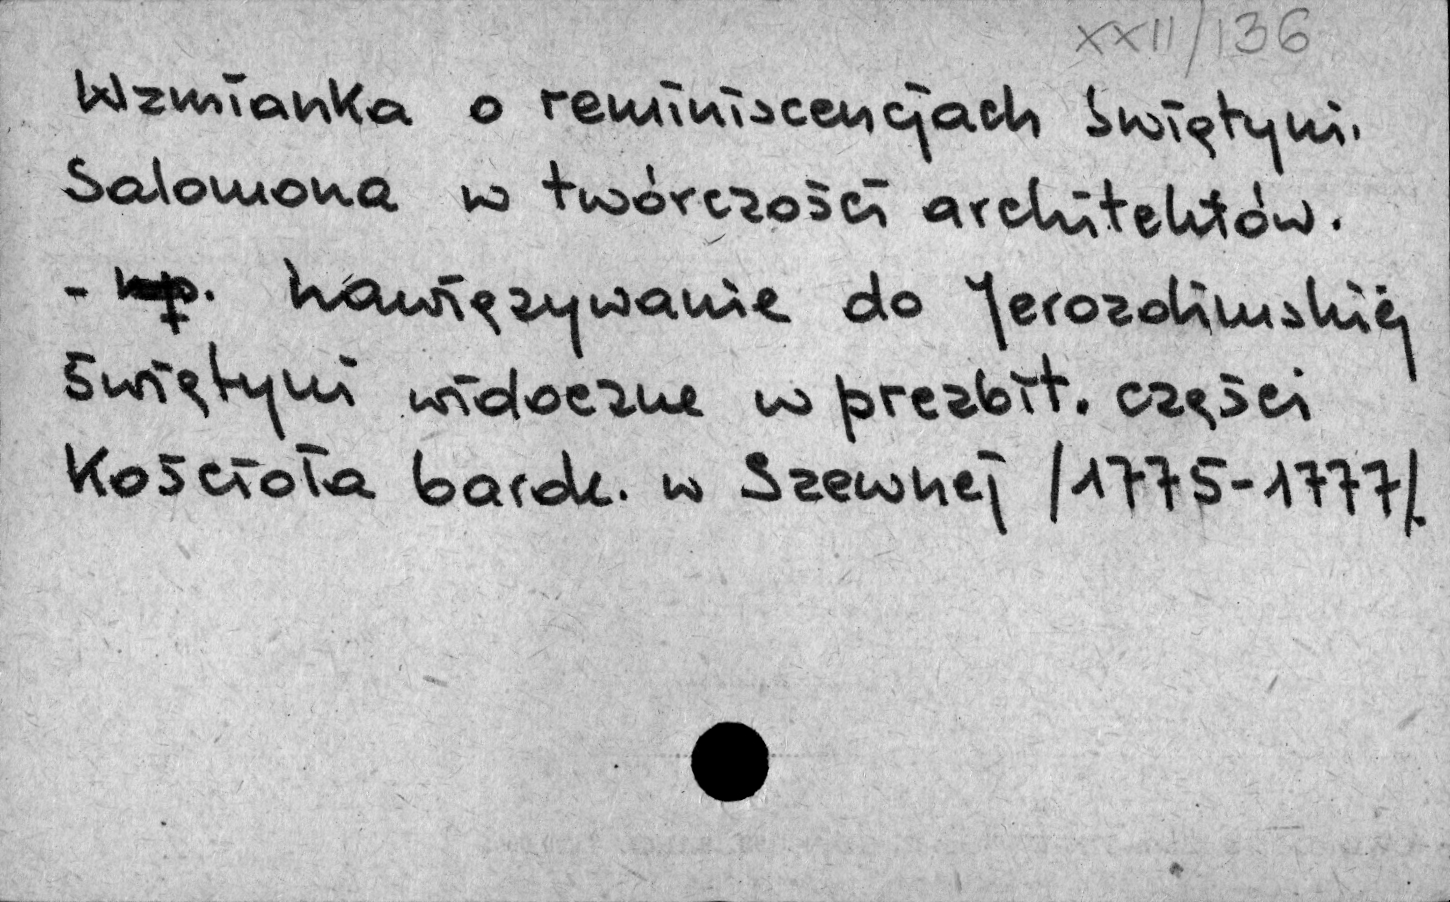 XXII/136
Wzmianka o reminiscencjach Świętyni.
Salomona w twórczości architektów.
- np. nawięzywanie do Jerozolimskiej
Świętyni widoczne w prezbit. części
Kościoła barok. w Szewnej /1775-1777/.